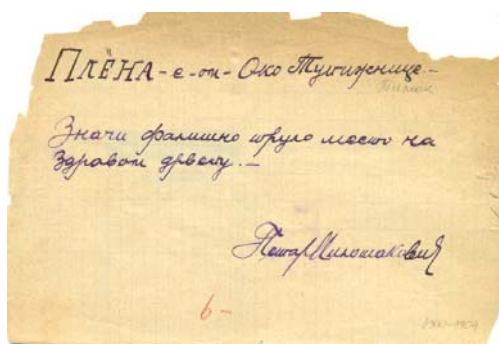 ПЛЁНА - е - от - Око Тутижнице. -
Значи фалишно труло место на
здравом дрвету. -
Петар Милошаković
6 -